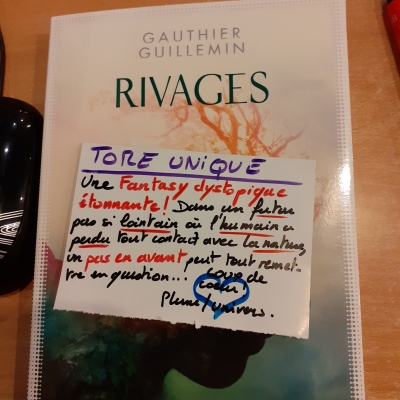 GAUTHIER
GUILLEMIN
RIVAGES
TOME UNIQUE
Une Fantasy dystopique
étonnante! Dans un futur
pas si lointain où l'humain a
perdu tout contact avec la nature,
un pas en avant peut tout remet-
tre en question... coup de
coeur!
Plume/univers.